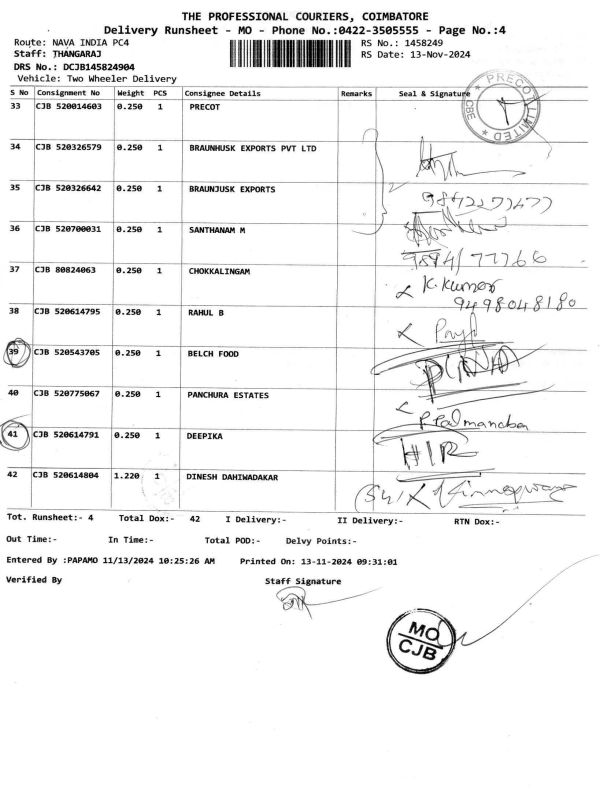 THE PROFESSIONAL COURIERS, COIMBATORE
Delivery Runsheet - MO - Phone No.:0422-3505555 - Page No.:4
Route: NAVA INDIA PC4 RS No.: 1458249
Staff: THANGARAJ RS Date: 13-Nov-2024
DRS No.: DCJB145824904
Vehicle: Two Wheeler Delivery
S No Consignment No Weight PCS Consignee Details Remarks Seal & Signature
PRECOT LIMITED CBE
33 CJB 520014603 0.250 1 PRECOT
34 CJB 520326579 0.250 1 BRAUNHUSK EXPORTS PVT LTD
35 CJB 520326642 0.250 1 BRAUNJUSK EXPORTS
36 CJB 520700031 0.250 1 SANTHANAM M
37 CJB 80824063 0.250 1 CHOKKALINGAM K. Kumar
9498048180
38 CJB 520614795 0.250 1 RAHUL B
39 CJB 520543705 0.250 1 BELCH FOOD
40 CJB 520775067 0.250 1 PANCHURA ESTATES
41 CJB 520614791 0.250 1 DEEPIKA
42 CJB 520614804 1.220 1 DINESH DAHIWADAKAR
Tot. Runsheet:- 4 Total Dox:- 42 I Delivery:- II Delivery:- RTN Dox:-
Out Time:- In Time:- Total POD:- Delvy Points:-
Entered By :PAPAMO 11/13/2024 10:25:26 AM Printed On: 13-11-2024 09:31:01
Verified By Staff Signature
MO
CJB